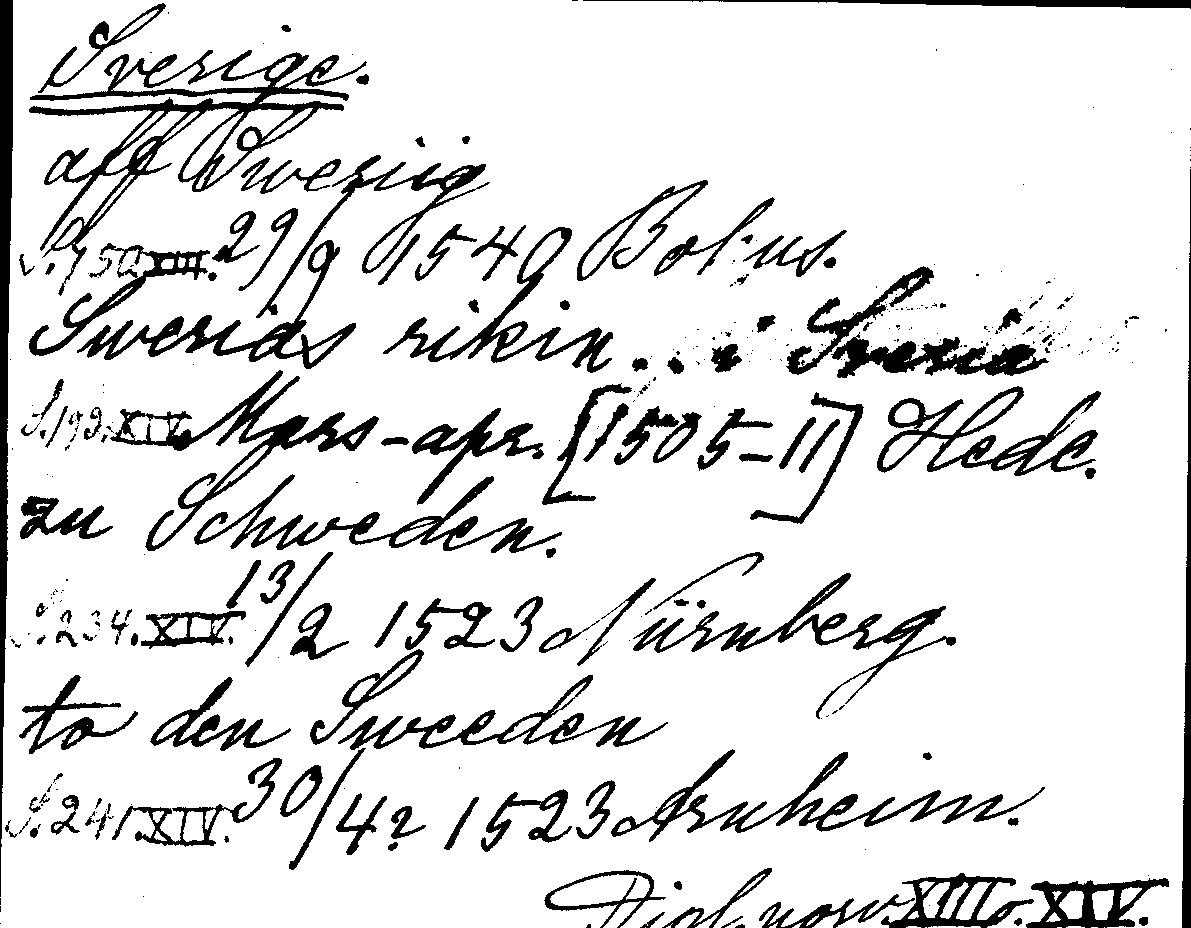 Sverige.
aff Sweriig
S. 750 XIII. 29/9 1540 Bohus.
Swerias rikin... i Sveria
S. 193. XIV. Mars-apr. [1505-11] Hede.
zu Schweden.
S. 234. XIV. 13/2 1523 Nürnberg.
to den Sweeden
S. 241. XIV. 30/4? 1523 Arnheim.
Dipl. norv. XIII o. XIV.